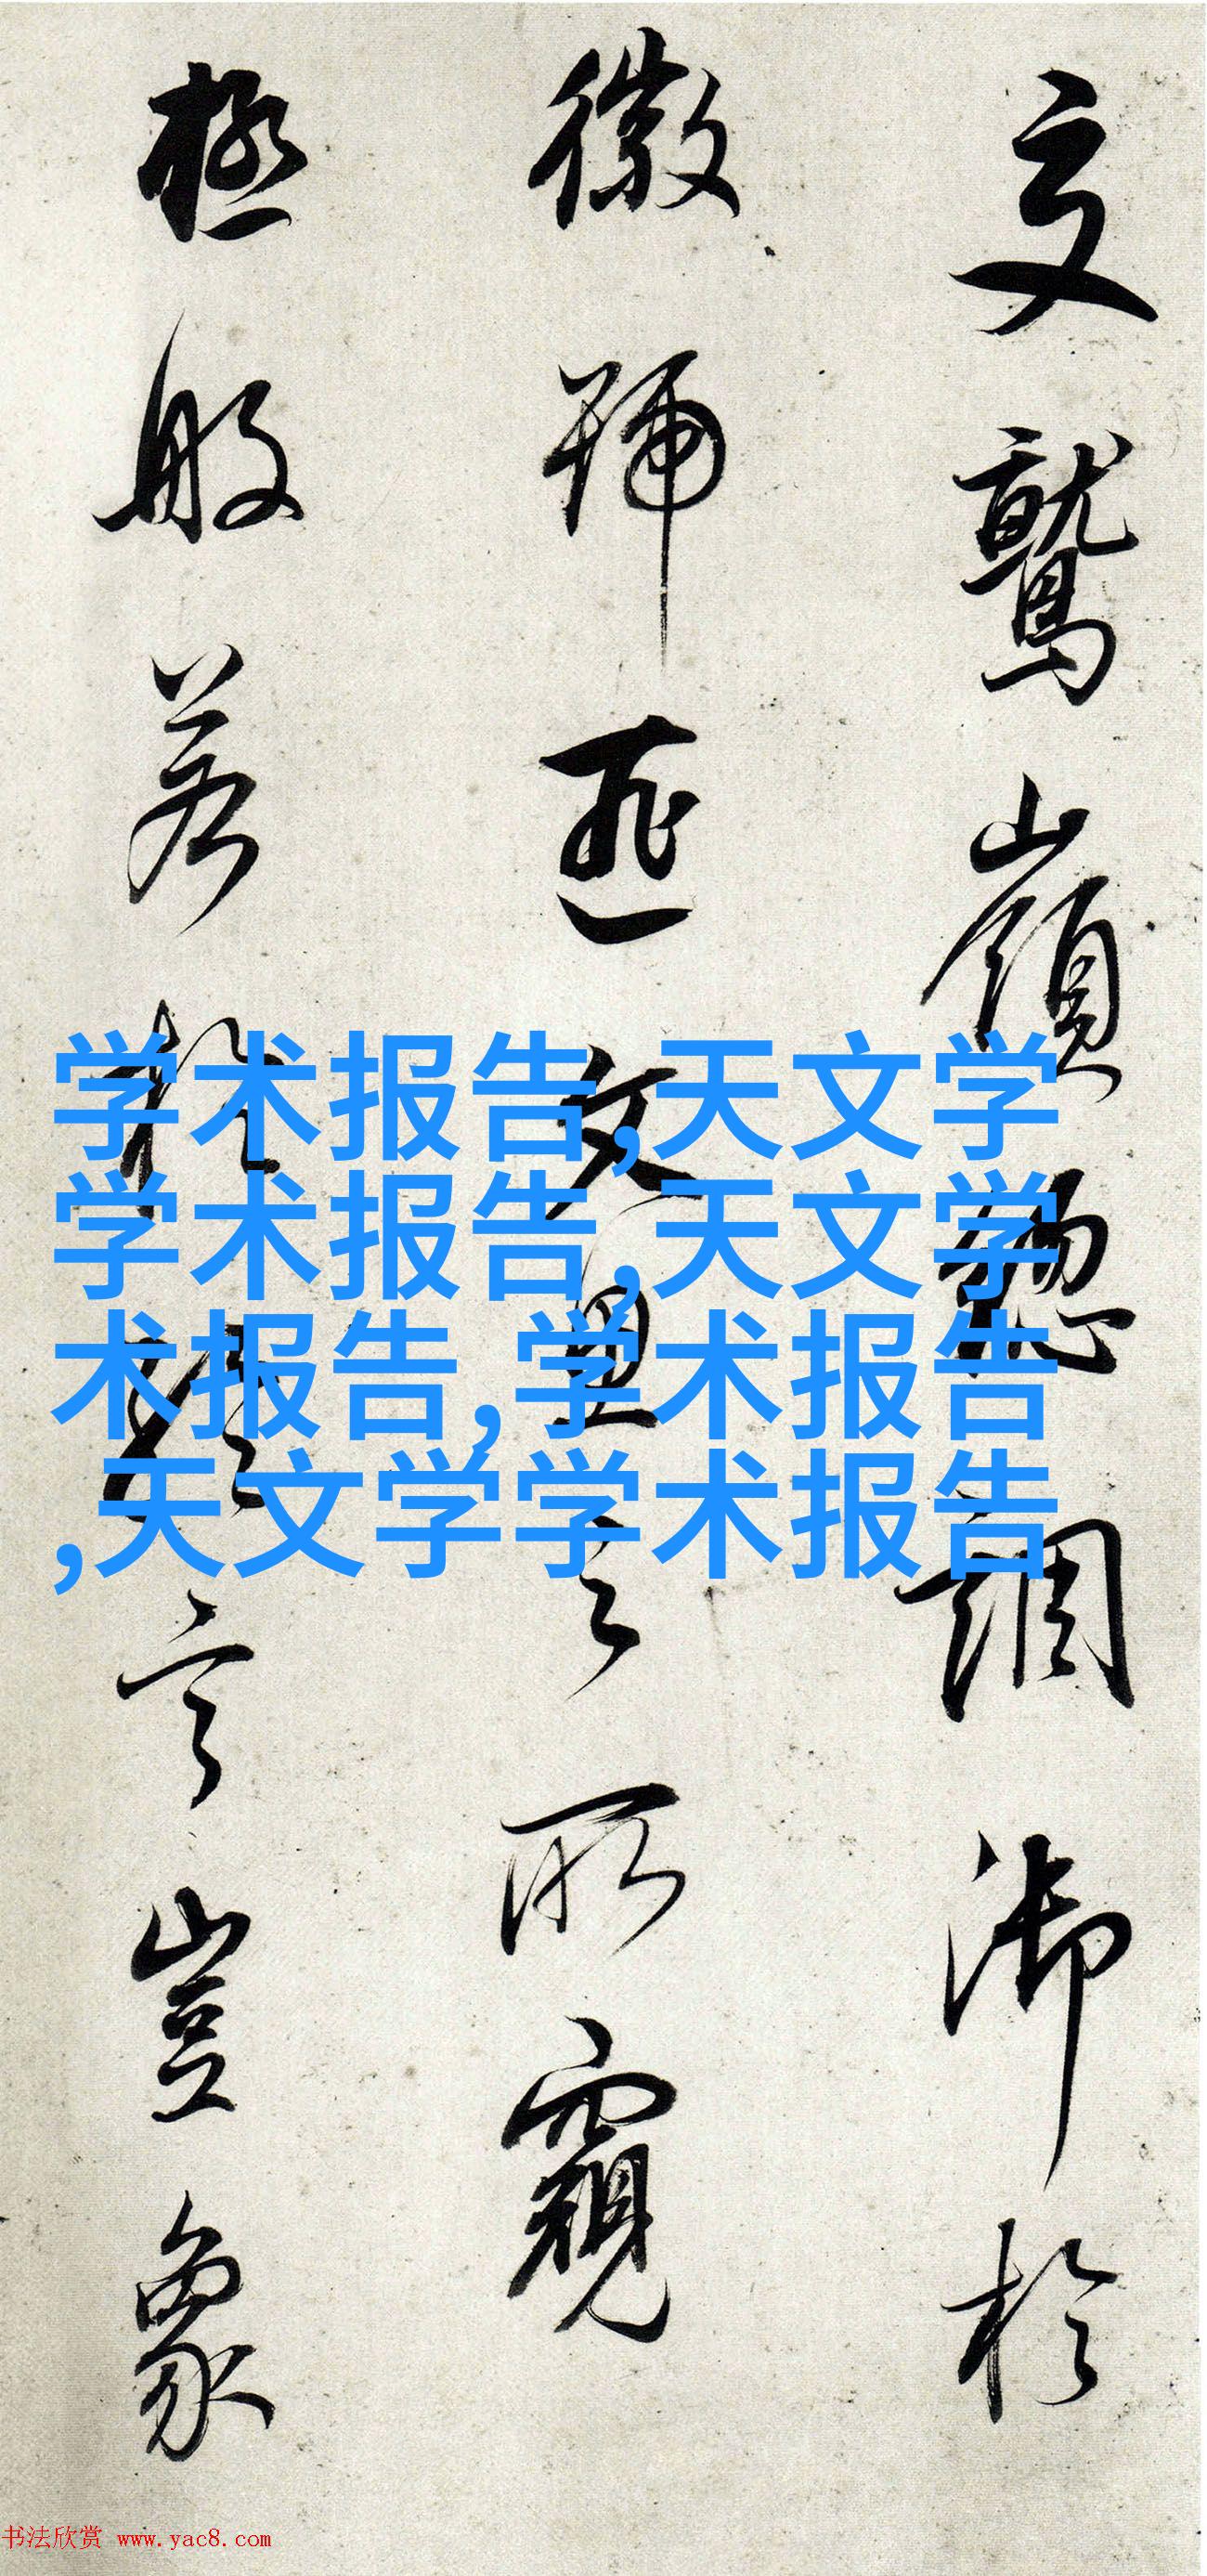 文鷲嶺總調御於
徽號匪文理之所窺
極般若於言豈象
学术报告,天文学
学术报告,天文学
术报告,学术报告
,天文学学术报告
书法欣赏 www.yac8.com